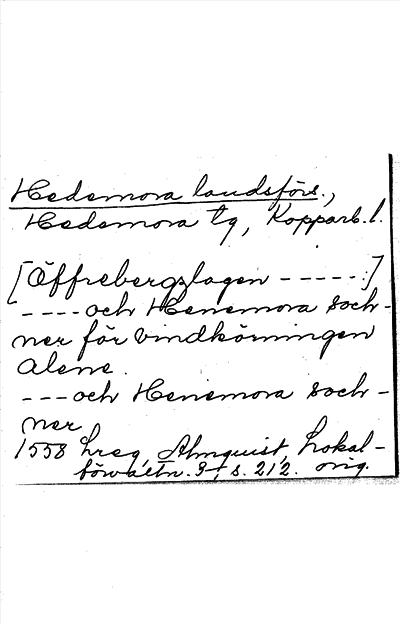 Hedemora landsförs.,
Hedemora tg, Kopparb. l.
[Öffrebergzlagen -----:]
----och Henemora soch-
ner för vindkörningen
alene.
---och Henemora soch-
ner
1558 Lreg, Almquist, Lokal-
förvaltn. 3, s. 212. orig.